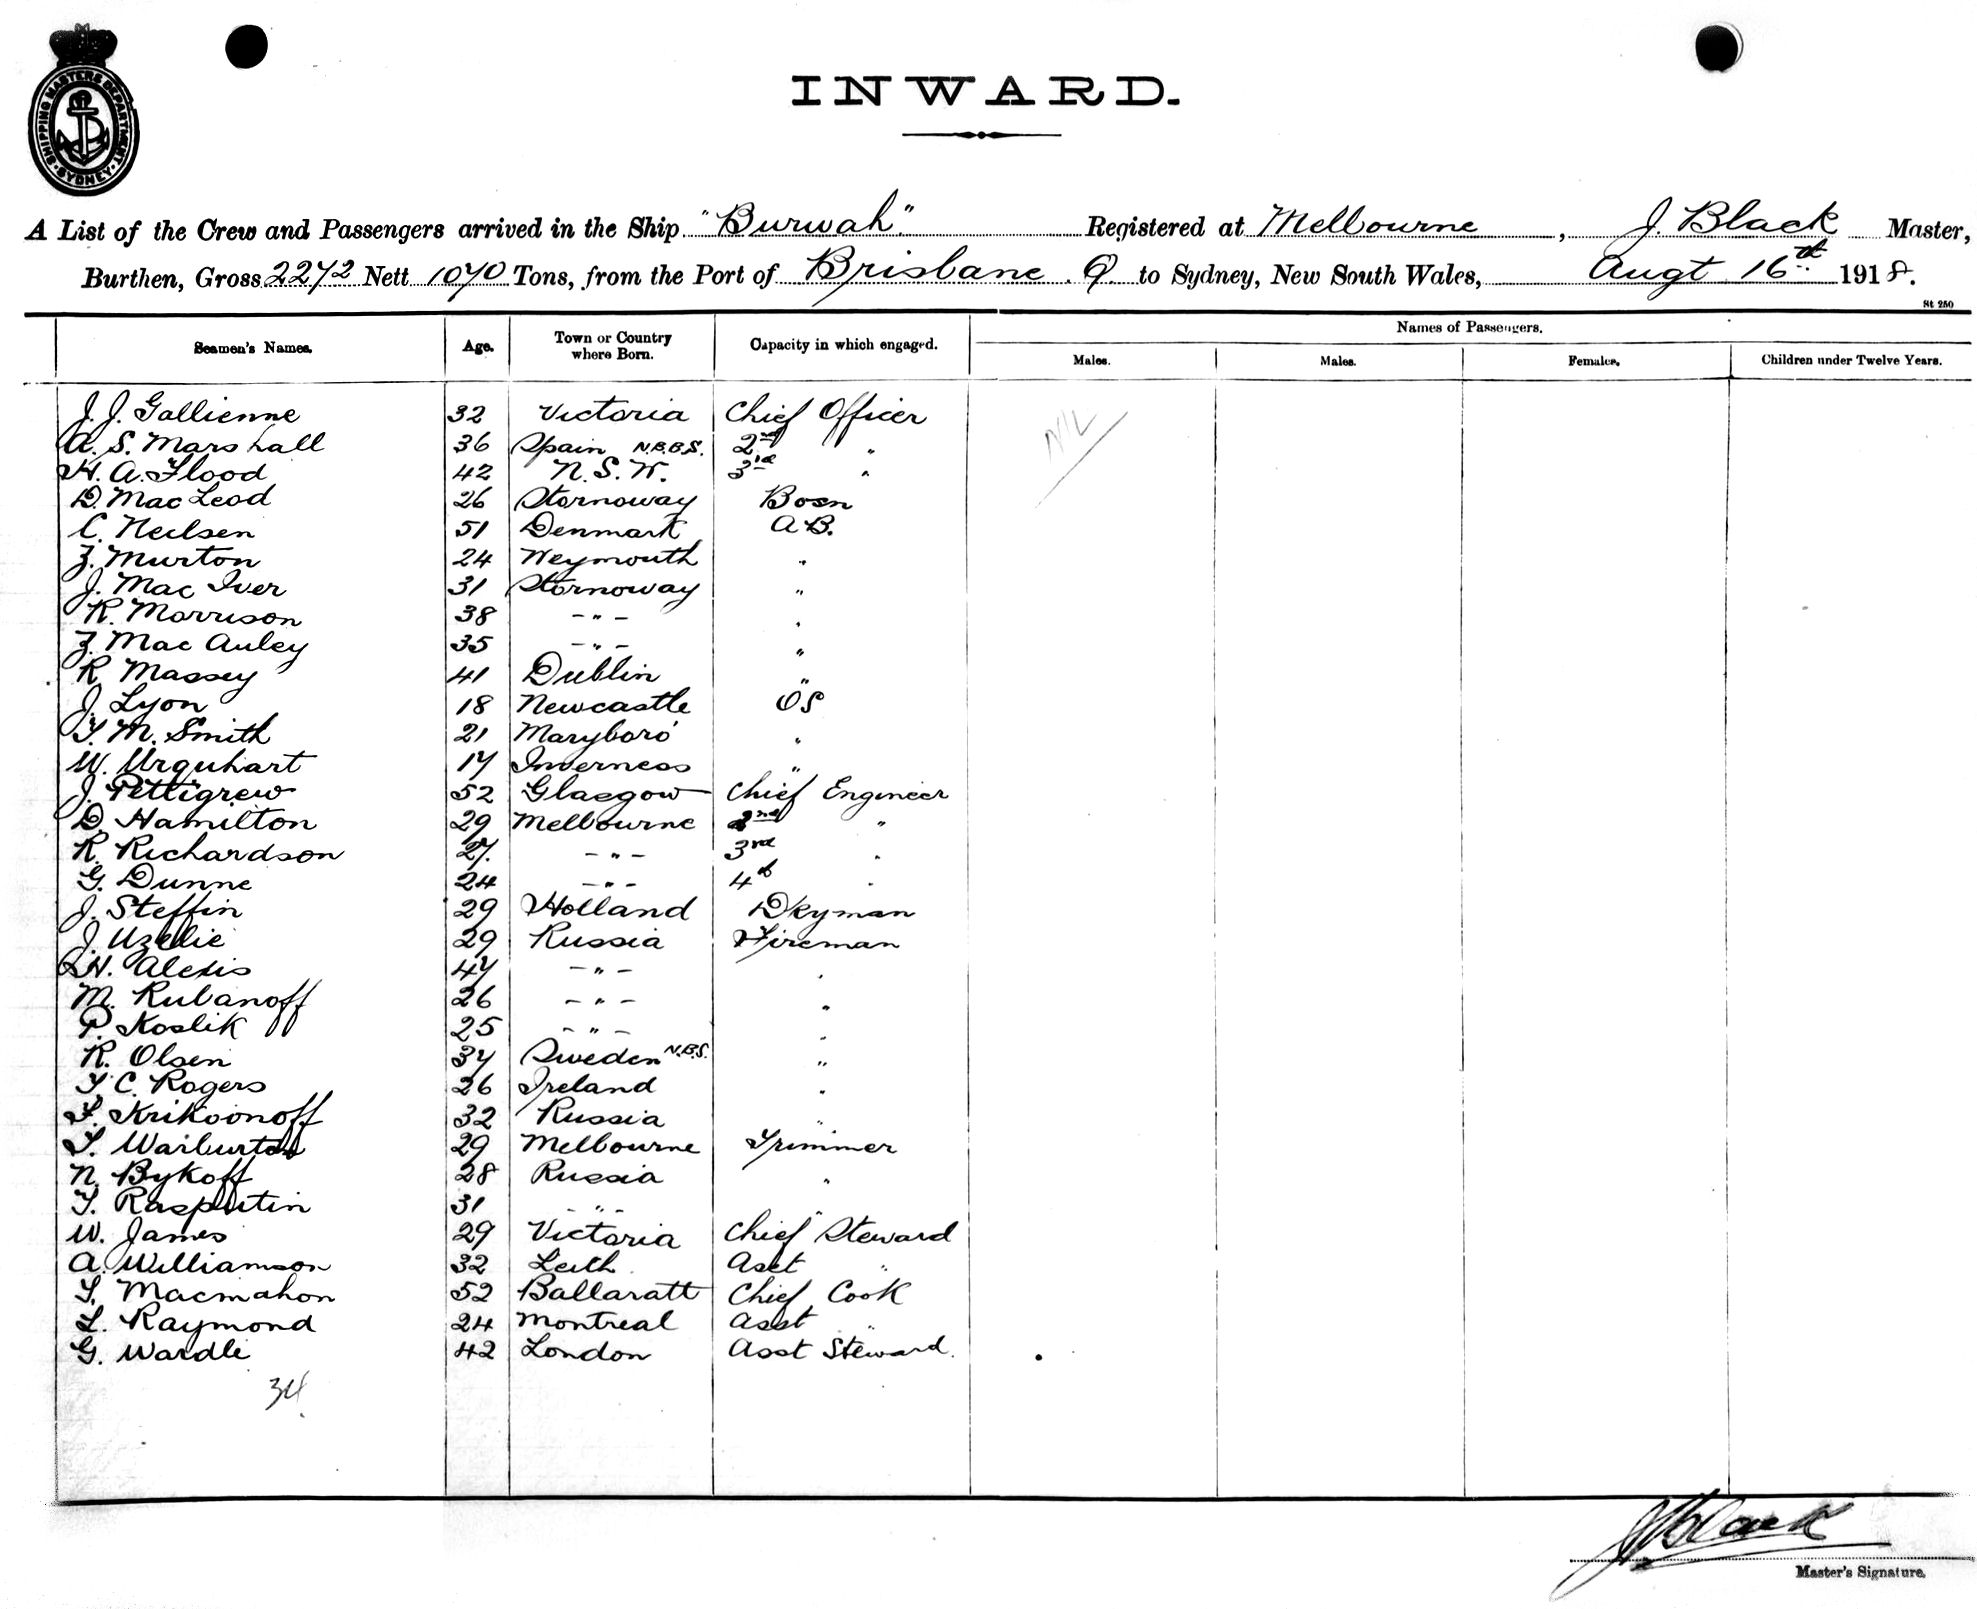 SHIPPING MASTERS DEPARTMENT SYDNEY
INWARD.
A List of the Crew and Passengers arrived in the Ship "Burwah" Registered at Melbourne, J. Black Master,
Burthen, Gross 2272 Nett 1070 Tons, from the Port of Brisbane Q. to Sydney, New South Wales, Augt 16th 1918.
St 250
Seamen's Names. Age. Town or Country where Born. Capacity in which engaged. Names of Passengers.
Males. Males. Females. Children under Twelve Years.
J. J. Gallienne 32 Victoria Chief Officer NIL
A. S. Marshall 36 Spain N.B.B.S. 2nd "
H. A. Flood 42 N. S. W. 3rd "
D. Mac Leod 26 Stornoway Bosn
C. Neilsen 51 Denmark A B.
F. Murton 24 Weymouth "
J. Mac Iver 31 Stornoway "
R. Morrison 38 - " - "
F. Mac Auley 35 - " - "
R Massey 41 Dublin "
J. Lyon 18 Newcastle OS
T. M. Smith 21 Maryboro' "
W. Urquhart 17 Inverness "
J. Pettigrew 52 Glasgow Chief Engineer
D. Hamilton 29 Melbourne 2nd "
R. Richardson 27. - " - 3rd "
G. Dunne 24 - " - 4th "
J. Steffin 29 Holland Dkyman
J. Uzelie 29 Russia Fireman
H. Alexis 47 - " - "
M. Rubanoff 26 - " - "
P. Koslik 25 - " - "
R. Olsen 37 Sweden N.B.S. "
T C. Rogers 26 Ireland "
F. Krikoonoff 32 Russia "
T. Warburton 29 Melbourne Trimmer
N. Bykoff 28 Russia "
T. Rasputin 31 - " - "
W. James 29 Victoria Chief Steward
A. Williamson 32 Leith Asst "
T. Macmahon 52 Ballaratt Chief Cook
L. Raymond 24 Montreal Asst "
G. Wardle 42 London Asst Steward.
34
J Black
Master's Signature.